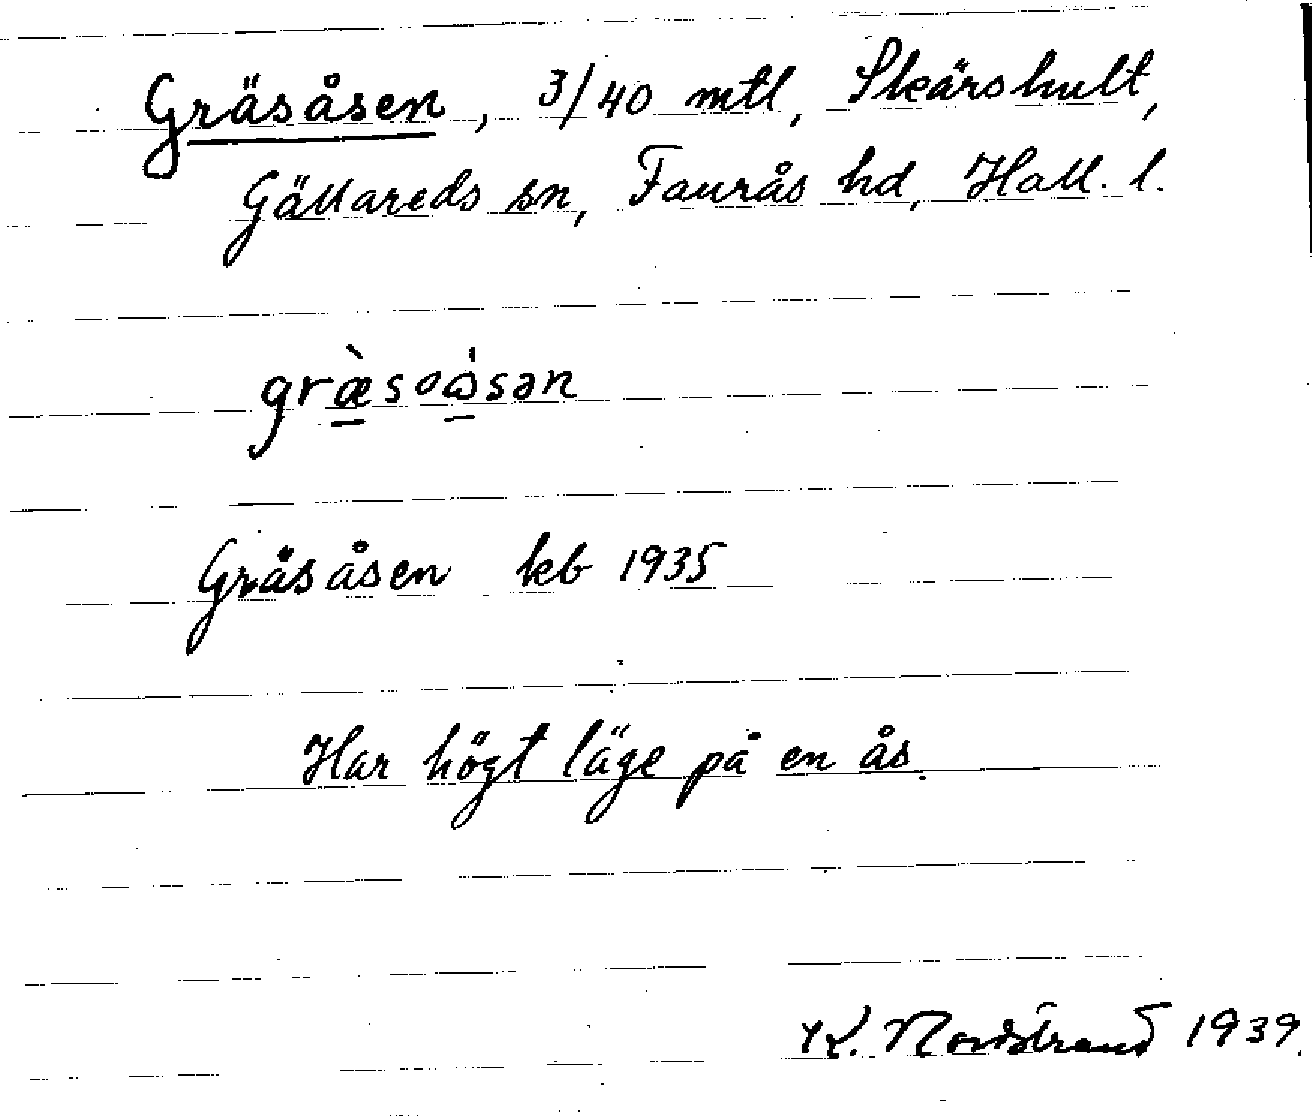 Gräsåsen, 3/40 mtl, Skärshult,
Gällareds sn, Faurås hd, Hall. l.
græ̀soɷ̇sən
Gräsåsen kb 1935
Har högt läge på en ås.
K. Nordstrand 1939.